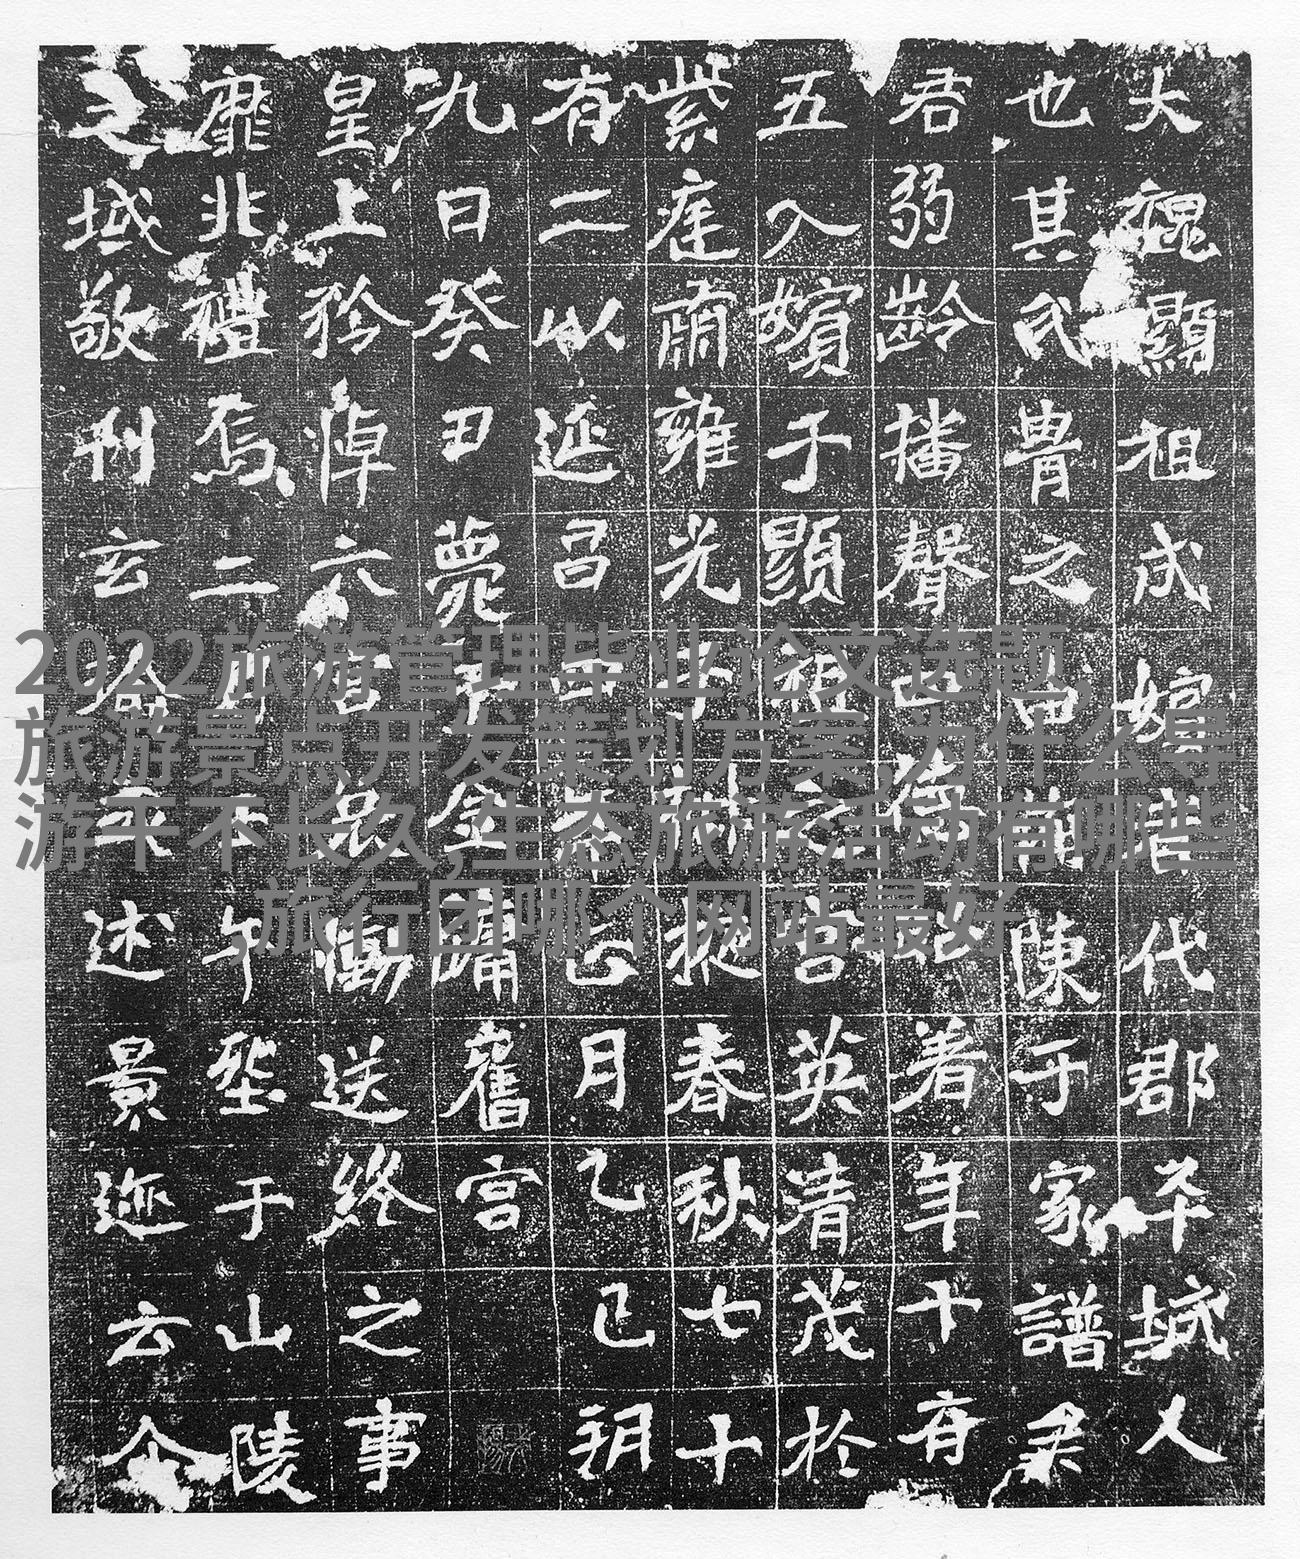 大魏顯祖成嬪代郡平城人
也其氏胄之陳于家譜
君弱齡播聲著年十有
五入嬪于顯祖之宮英清茂於
紫庭肅雍光于掖春秋七十
有二以延昌四年正月乙巳朔
九日癸丑薨于金墉舊宮
皇上矜悼六宮哀慟送終之事
靡非禮焉二月午塟于山陵
之域敬刊玄述景迹云尒
2022旅游管理毕业论文选题,
旅游景点开发策划方案,为什么导
游干不长久,生态旅游活动有哪些
,旅行团哪个网站最好